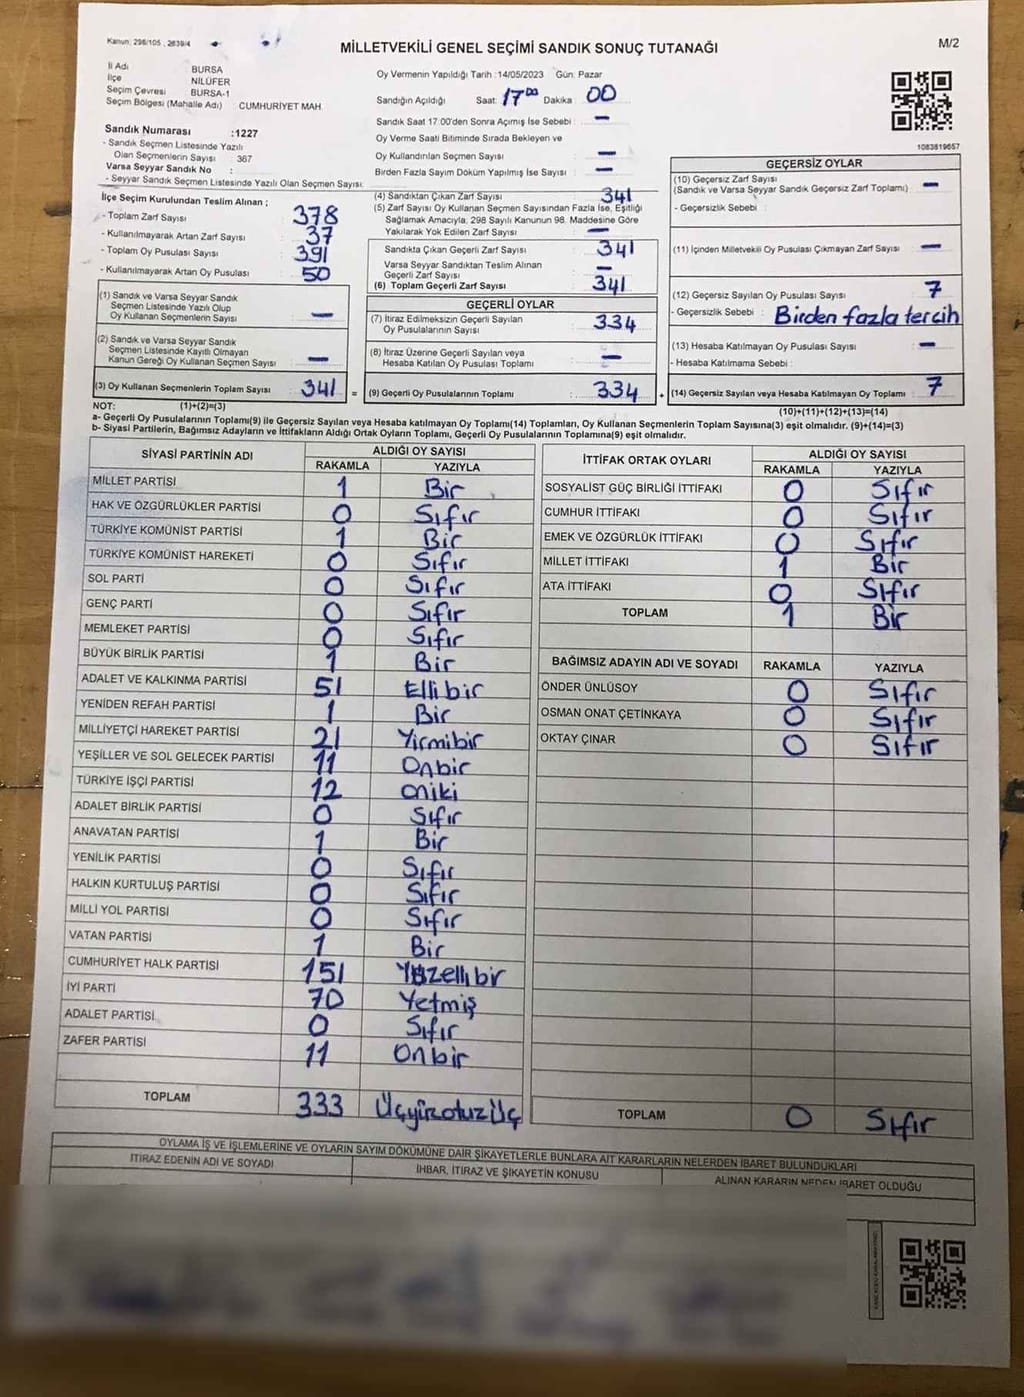 Kanun: 298/105 , 2839/4
MİLLETVEKİLİ GENEL SEÇİMİ SANDIK SONUÇ TUTANAĞI
M/2
İl Adı BURSA
İlçe NİLÜFER
Seçim Çevresi BURSA-1
Seçim Bölgesi (Mahalle Adı) CUMHURİYET MAH.
Sandık Numarası :1227
- Sandık Seçmen Listesinde Yazılı
Olan Seçmenlerin Sayısı 367
Varsa Seyyar Sandık No :
- Seyyar Sandık Seçmen Listesinde Yazılı Olan Seçmen Sayısı:
Oy Vermenin Yapıldığı Tarih :14/05/2023 Gün: Pazar
Sandığın Açıldığı Saat: 17⁰⁰ Dakika : 00
Sandık Saat 17:00'den Sonra Açımış İse Sebebi : –
Oy Verme Saati Bitiminde Sırada Bekleyen ve
Oy Kullandırılan Seçmen Sayısı : –
Birden Fazla Sayım Döküm Yapılmış İse Sayısı : –
1083819657
İlçe Seçim Kurulundan Teslim Alınan ;
- Toplam Zarf Sayısı : 378
- Kullanılmayarak Artan Zarf Sayısı : 37
- Toplam Oy Pusulası Sayısı : 391
- Kullanılmayarak Artan Oy Pusulası : 50
(1) Sandık ve Varsa Seyyar Sandık
Seçmen Listesinde Yazılı Olup
Oy Kullanan Seçmenlerin Sayısı : –
(2) Sandık ve Varsa Seyyar Sandık
Seçmen Listesinde Kayıtlı Olmayan
Kanun Gereği Oy Kullanan Seçmen Sayısı : –
(3) Oy Kullanan Seçmenlerin Toplam Sayısı : 341
(4) Sandıktan Çıkan Zarf Sayısı : 341
(5) Zarf Sayısı Oy Kullanan Seçmen Sayısından Fazla İse, Eşitliği
Sağlamak Amacıyla, 298 Sayılı Kanunun 98. Maddesine Göre
Yakılarak Yok Edilen Zarf Sayısı : –
Sandıkta Çıkan Geçerli Zarf Sayısı : 341
Varsa Seyyar Sandıktan Teslim Alınan
Geçerli Zarf Sayısı : –
(6) Toplam Geçerli Zarf Sayısı : 341
GEÇERLİ OYLAR
(7) İtiraz Edilmeksizin Geçerli Sayılan
Oy Pusulalarının Sayısı : 334
(8) İtiraz Üzerine Geçerli Sayılan veya
Hesaba Katılan Oy Pusulaları Toplamı : –
= (9) Geçerli Oy Pusulalarının Toplamı : 334
GEÇERSİZ OYLAR
(10) Geçersiz Zarf Sayısı
(Sandık ve Varsa Seyyar Sandık Geçersiz Zarf Toplamı) : –
- Geçersizlik Sebebi :
(11) İçinden Milletvekili Oy Pusulası Çıkmayan Zarf Sayısı : –
(12) Geçersiz Sayılan Oy Pusulası Sayısı : 7
- Geçersizlik Sebebi : Birden fazla tercih
(13) Hesaba Katılmayan Oy Pusulası Sayısı : –
- Hesaba Katılmama Sebebi :
+ (14) Geçersiz Sayılan veya Hesaba Katılmayan Oy Toplamı : 7
NOT: (1)+(2)=(3)
(10)+(11)+(12)+(13)=(14)
a- Geçerli Oy Pusulalarının Toplamı(9) ile Geçersiz Sayılan veya Hesaba katılmayan Oy Toplamı(14) Toplamları, Oy Kullanan Seçmenlerin Toplam Sayısına(3) eşit olmalıdır. (9)+(14)=(3)
b- Siyasi Partilerin, Bağımsız Adayların ve İttifakların Aldığı Ortak Oyların Toplamı, Geçerli Oy Pusulalarının Toplamına(9) eşit olmalıdır.
SİYASİ PARTİNİN ADI ALDIĞI OY SAYISI
RAKAMLA YAZIYLA
MİLLET PARTİSİ 1 Bir
HAK VE ÖZGÜRLÜKLER PARTİSİ 0 Sıfır
TÜRKİYE KOMÜNİST PARTİSİ 1 Bir
TÜRKİYE KOMÜNİST HAREKETİ 0 Sıfır
SOL PARTİ 0 Sıfır
GENÇ PARTİ 0 Sıfır
MEMLEKET PARTİSİ 0 Sıfır
BÜYÜK BİRLİK PARTİSİ 1 Bir
ADALET VE KALKINMA PARTİSİ 51 Ellibir
YENİDEN REFAH PARTİSİ 1 Bir
MİLLİYETÇİ HAREKET PARTİSİ 21 Yirmibir
YEŞİLLER VE SOL GELECEK PARTİSİ 11 Onbir
TÜRKİYE İŞÇİ PARTİSİ 12 Oniki
ADALET BİRLİK PARTİSİ 0 Sıfır
ANAVATAN PARTİSİ 1 Bir
YENİLİK PARTİSİ 0 Sıfır
HALKIN KURTULUŞ PARTİSİ 0 Sıfır
MİLLİ YOL PARTİSİ 0 Sıfır
VATAN PARTİSİ 1 Bir
CUMHURİYET HALK PARTİSİ 151 Yüzellibir
İYİ PARTİ 70 Yetmiş
ADALET PARTİSİ 0 Sıfır
ZAFER PARTİSİ 11 Onbir
TOPLAM 333 Üçyüzotuzüç
İTTİFAK ORTAK OYLARI ALDIĞI OY SAYISI
RAKAMLA YAZIYLA
SOSYALİST GÜÇ BİRLİĞİ İTTİFAKI 0 Sıfır
CUMHUR İTTİFAKI 0 Sıfır
EMEK VE ÖZGÜRLÜK İTTİFAKI 0 Sıfır
MİLLET İTTİFAKI 1 Bir
ATA İTTİFAKI 0 Sıfır
TOPLAM 1 Bir
BAĞIMSIZ ADAYIN ADI VE SOYADI RAKAMLA YAZIYLA
ÖNDER ÜNLÜSOY 0 Sıfır
OSMAN ONAT ÇETİNKAYA 0 Sıfır
OKTAY ÇINAR 0 Sıfır
TOPLAM 0 Sıfır
OYLAMA İŞ VE İŞLEMLERİNE VE OYLARIN SAYIM DÖKÜMÜNE DAİR ŞİKAYETLERLE BUNLARA AİT KARARLARIN NELERDEN İBARET BULUNDUKLARI
İTİRAZ EDENİN ADI VE SOYADI
İHBAR, İTİRAZ VE ŞİKAYETİN KONUSU
ALINAN KARARIN NEDEN İBARET OLDUĞU